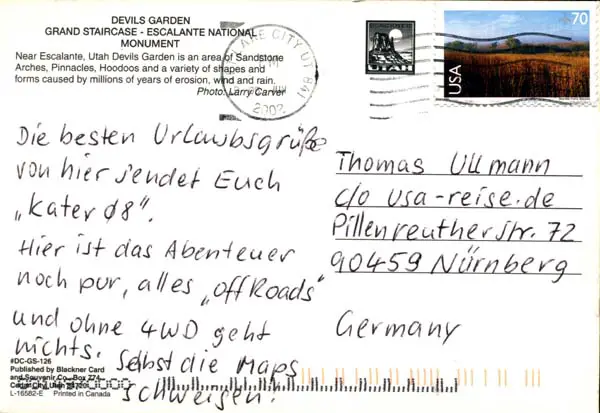 DEVILS GARDEN
GRAND STAIRCASE - ESCALANTE NATIONAL
MONUMENT
Near Escalante, Utah Devils Garden is an area of Sandstone
Arches, Pinnacles, Hoodoos and a variety of shapes and
forms caused by millions of years of erosion, wind and rain.
Photo: Larry Carver
LAKE CITY UT 841
2002
ESCALANTE
UTAH
70
USA
Die besten Urlaubsgrüße
von hier sendet Euch
„Kater 08".
Hier ist das Abenteuer
noch pur, alles „offRoads"
und ohne 4WD geht
nichts. Selbst die Maps
schweigen!
Thomas Ullmann
c/o usa-reise.de
Pillenreutherstr. 72
90459 Nürnberg
Germany
#DC-GS-126
Published by Blackner Card
and Souvenir Co., Box 774
Cedar City, Utah
L-16582-E Printed in Canada